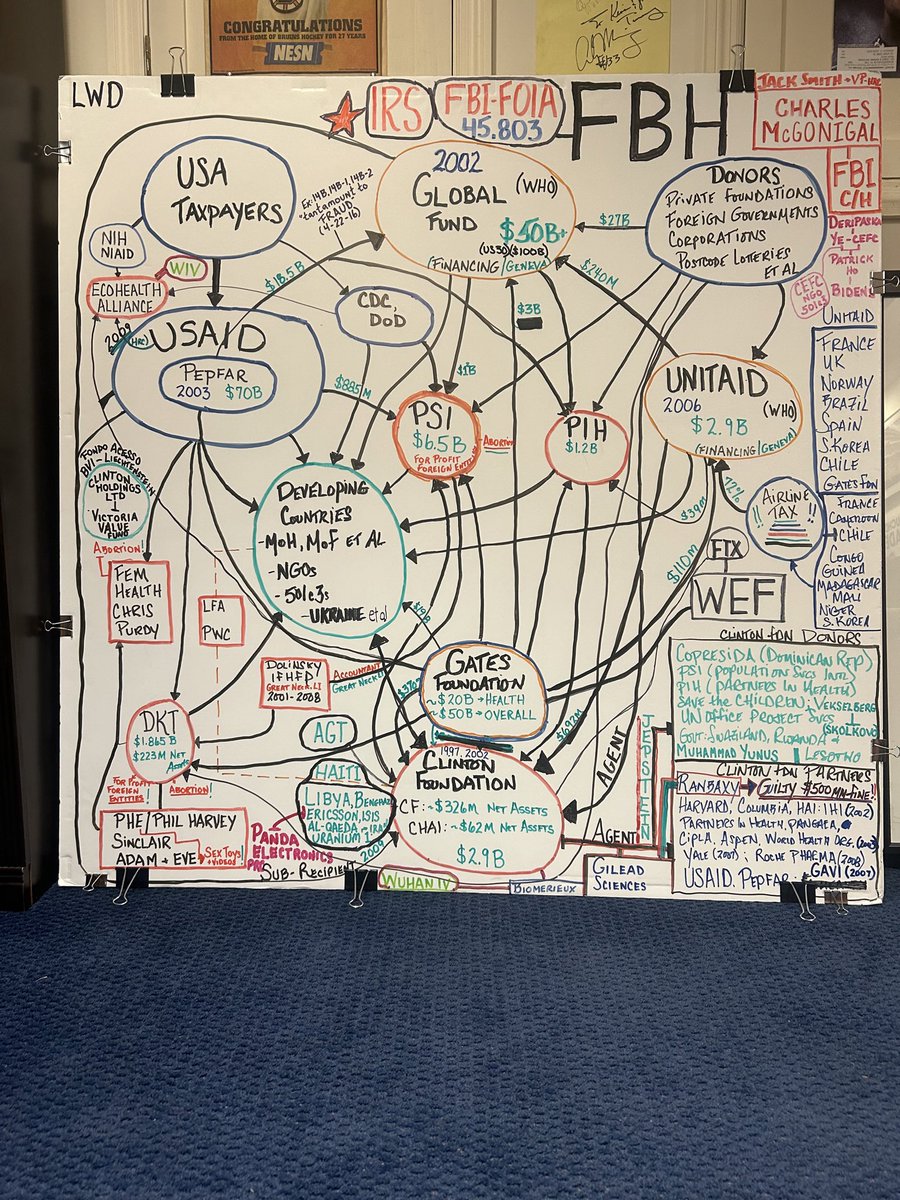 CONGRATULATIONS
FROM THE HOME OF BRUINS HOCKEY FOR 27 YEARS
NESN
#33
LWD
IRS
FBI-FOIA
45.803
FBH
JACK SMITH
CHARLES
McGONIGAL
FBI
C/H
DERIPASKA
YE-CEFC
PATRICK
HO
BIDENS
CEFC
NGO
501c3
USA
TAXPAYERS
Ex: 14B, 14B-1, 14B-2
"tantamount to
FRAUD"
(4-22-16)
2002
GLOBAL (WHO)
FUND
$50B+
(US30)($100B)
(FINANCING/GENEVA)
$27B
DONORS
PRIVATE FOUNDATIONS
FOREIGN GOVERNMENTS
CORPORATIONS
POSTCODE LOTTERIES
ET AL
NIH
NIAID
WIV
ECOHEALTH
ALLIANCE
2009
(HRC)
$18.5B
CDC,
DoD
$3B
$240M
USAID
PEPFAR
2003 $70B
$885M
$1B
PSI
$6.5B
FOR PROFIT
FOREIGN ENTITIES
ABORTION
PIH
$1.2B
UNITAID
2006 (WHO)
$2.9B
(FINANCING/GENEVA)
UNITAID
FRANCE
UK
NORWAY
BRAZIL
SPAIN
S.KOREA
CHILE
GATES FDN
FRANCE
CAMEROON
CHILE
CONGO
GUINEA
MADAGASCAR
MALI
NIGER
S.KOREA
72%
AIRLINE
TAX
$39M
$110M
FTX
WEF
FONDO ACESSO
BVI-LIECHTENSTEIN
CLINTON
HOLDINGS
LTD
VICTORIA
VALUE
FUND
ABORTION!
FEM
HEALTH
CHRIS
PURDY
LFA
PWC
DEVELOPING
COUNTRIES
-MOH, MOF ET AL
-NGOs
-501c3s
-UKRAINE et al
DOLINSKY
IFHFP
GREAT NECK, LI
2001-2008
ACCOUNTANT
GREAT NECK LI
GATES
FOUNDATION
~$20B → HEALTH
~$50B → OVERALL
$692M
DKT
$1.865 B
$223M NET
ASSETS
FOR PROFIT
FOREIGN
ENTITIES
ABORTION!
AGT
HAITI
LIBYA, BENGHAZI
ERICSSON, ISIS
AL-QAEDA
URANIUM 1
2009
1997, 2002
CLINTON
FOUNDATION
CF: ~$326M NET ASSETS
CHAI: ~$62M NET ASSETS
$2.9B
AGENT
AGENT
JEPSTEIN
PHE/PHIL HARVEY
SINCLAIR
ADAM + EVE
SEX TOYS
VIDEOS!
PANDA
ELECTRONICS
PRC
SUB-RECIPIENT
WUHAN IV
BIOMERIEUX
GILEAD
SCIENCES
CLINTON FDN DONORS
COPRESIDA (DOMINICAN REP)
PSI (POPULATION SVCS INTL)
PIH (PARTNERS IN HEALTH)
SAVE THE CHILDREN; VEKSELBERG
(SKOLKOVO)
UN OFFICE PROJECT SVCS
GOVT: SWAZILAND, RWANDA &
LESOTHO
MUHAMMAD YUNUS
CLINTON FDN PARTNERS
RANBAXY → GUILTY $500MM-FINE!!
HARVARD, COLUMBIA, HAI: IHI (2002)
PARTNERS IN HEALTH, PANGAEA,
CIPLA, ASPEN, WORLD HEALTH ORG. (2003)
YALE (2007); ROCHE PHARMA (2008)
USAID. PEPFAR. GAVI (2007)